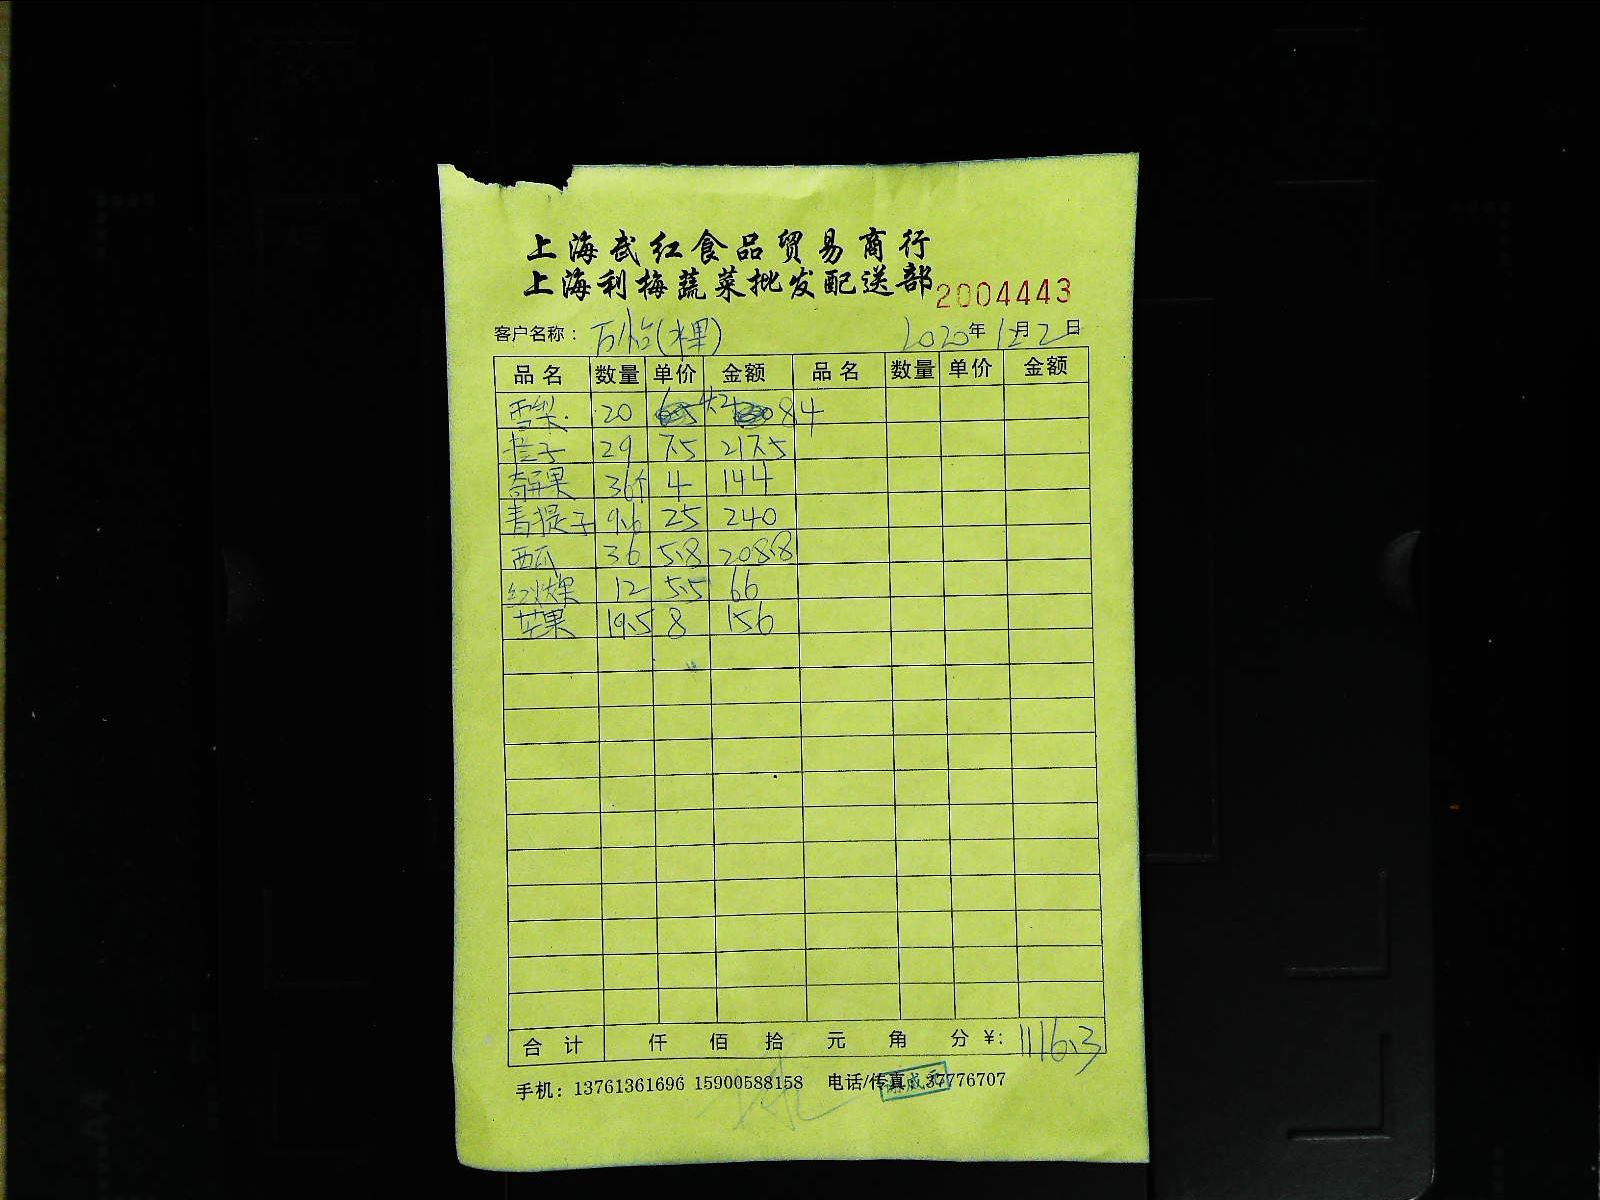 上海武红食品贸易商行
上海利梅蔬菜批发配送部 2004443
客户名称：万怡(水果) 2020年12月2日
品名 数量 单价 金额 品名 数量 单价 金额
雪梨 20 4.2 84
橙子 29 7.5 217.5
奇异果 36个 4 144
青提子 9.6 25 240
西瓜 36 5.8 208.8
红火龙果 12 5.5 66
苹果 19.5 8 156
合计 仟 佰 拾 元 角 分 ¥: 1116.3
手机：13761361696 15900588158 电话/传真：37776707